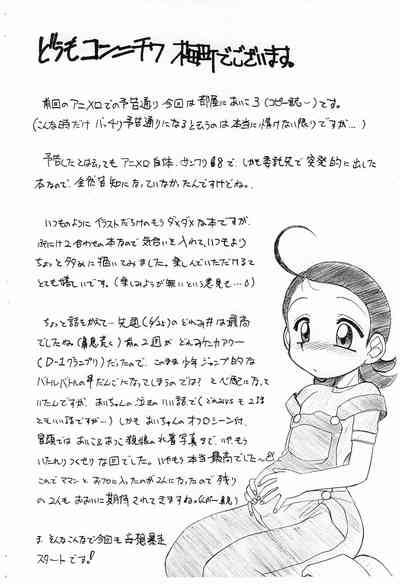 どうもコンニチワ 梅町でございます。
前回のアニメロでの予告通り今回は部屋に
(こんな時だけバッチリ予告通りになるというのは本当に情けない限りですが…)
予告したとはいってもアニメロ自体、サンクリ で、しかも委託先で突発的に出した
本なので、全然告知になっていなかったんですけどね。
いつものようにイラストだらけのもうダメダメな本ですが、
合わせの本なので気合いを入れて、いつもより
ちょっと多めに描いてみました。楽しんでいただけると
とても嬉しいです。(楽しみようが無いという意見も…。)
ちょっと話をかえて… 先週 のどれみ#は最高
でしたね。 前の2回が
(D-1グランプリ)だったので、このまま少年ジャンプ的な
バトルバトルの になってしまうのでは?と心配になって
いたんですが、あいちゃんの泣ける いい話で(どれみも2話
ともいい話ですが…)しかもあいちゃんオフロシーン付、
冒頭ではあいこ の水着写真まで、いやもう
いたれりつくせりな回でした。いやもう本当に最高でした〜
これでママンとおフロに入ったのが2人になったので残り
の2人もおおいに期待されてきますね。
ま、そんなこんなで今回も 暴走
スタートです。!